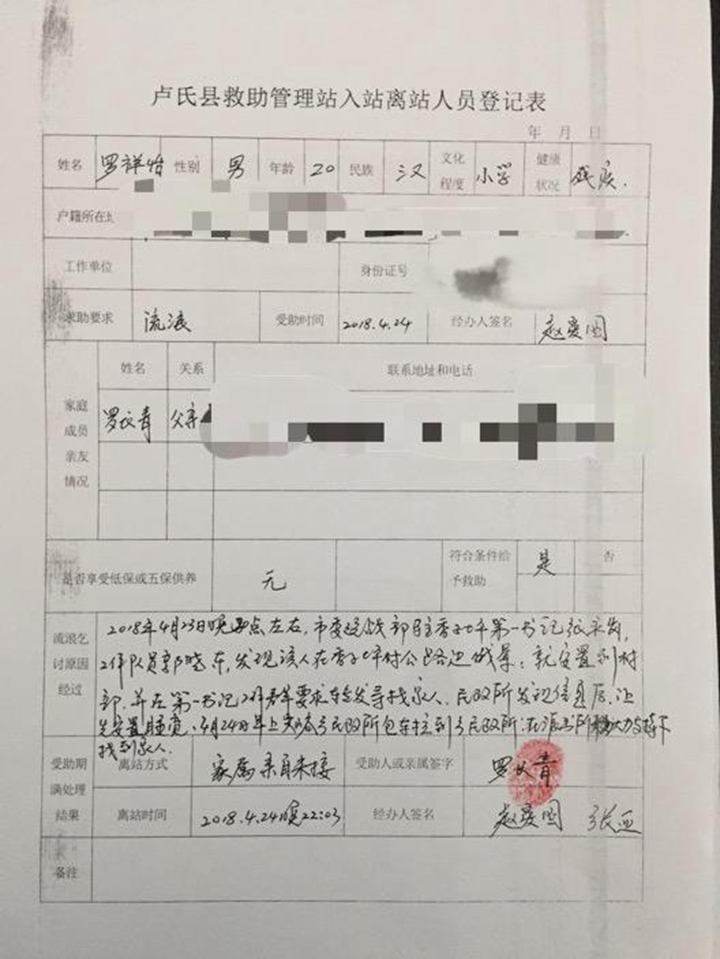 卢氏县救助管理站入站离站人员登记表
年 月 日
姓名 罗祥怡 性别 男 年龄 20 民族 汉 文化程度 小学 健康状况 残疾.
户籍所在
工作单位 身份证号
求助要求 流浪 受助时间 2018.4.24 经办人签名 赵爱国
家庭成员亲友情况 姓名 关系 联系地址和电话
罗长青 父亲
是否享受低保或五保供养 无 符合条件给予救助 是 否
流浪乞讨原因经过
2018年4月23日晚 点左右,市委统战部驻香子坪第一书记张 ,
工作队员郭晓东,发现该人在香子坪村公路边 ;就安置到村
部.并在第一书记 要求 发寻找家人.民政所发现信息后,让
先安置睡觉.4月24日早上 民政所包车接到 民政所;在派出所 大力支持下
找到家人.
受助期满处理结果 离站方式 家属亲自来接 受助人或亲属签字 罗长青
离站时间 2018.4.24晚22:03 经办人签名 赵爱国 张亚
备注